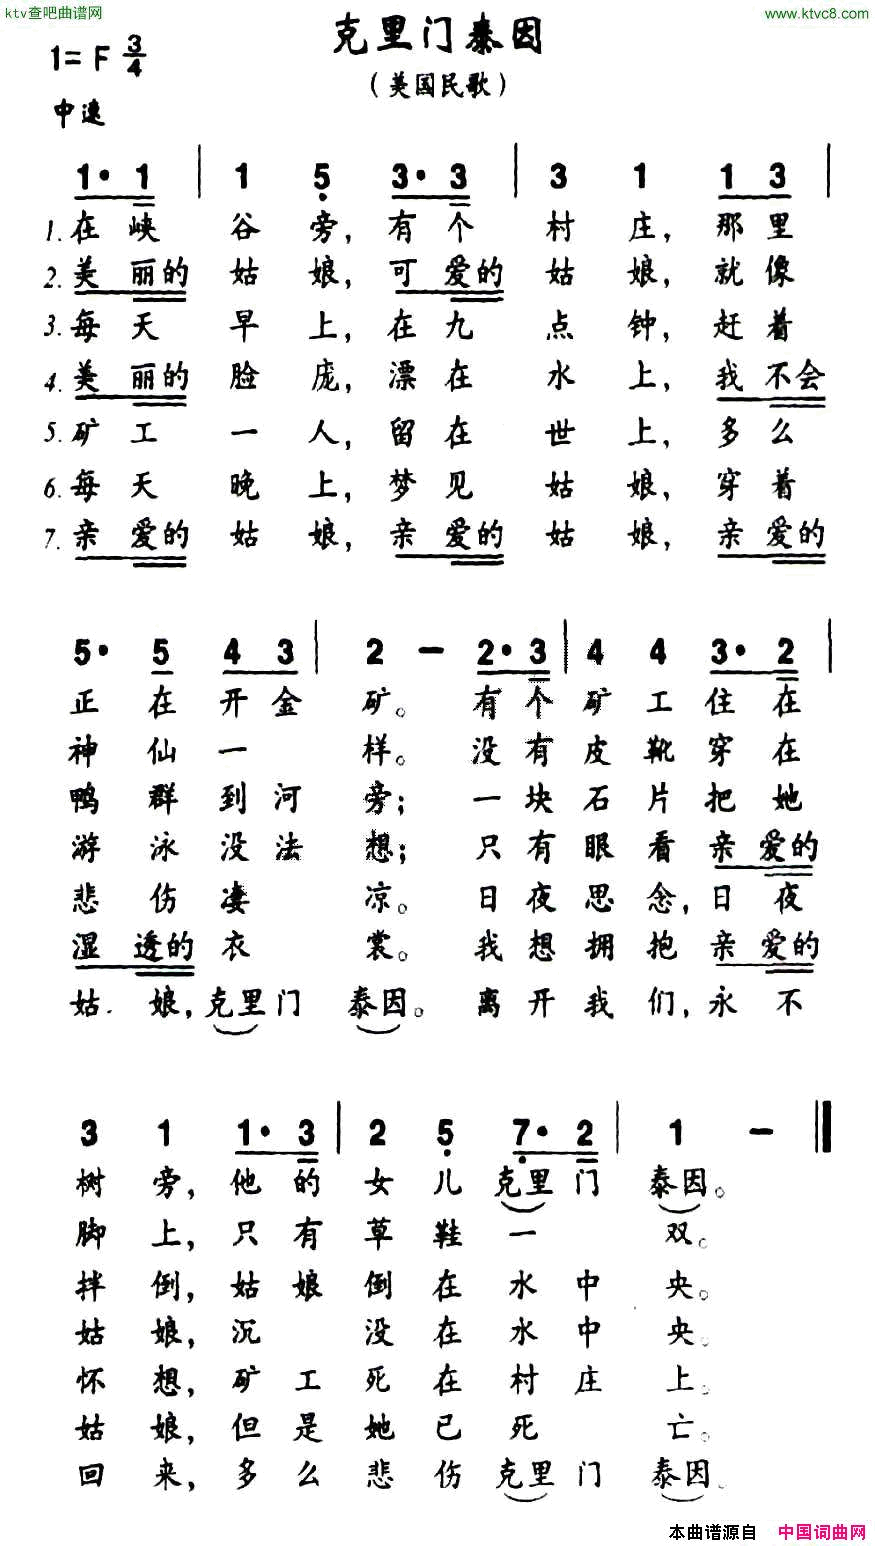 ktv查吧曲谱网
www.ktvc8.com
克里门泰因
1=F 3/4
（美国民歌）
中速
1· 1 | 1 5 3· 3 | 3 1 1 3 |
1. 在峡谷旁，有个村庄，那里
2. 美丽的姑娘，可爱的姑娘，就像
3. 每天早上，在九点钟，赶着
4. 美丽的脸庞，漂在水上，我不会
5. 矿工一人，留在世上，多么
6. 每天晚上，梦见姑娘，穿着
7. 亲爱的姑娘，亲爱的姑娘，亲爱的
5· 5 4 3 | 2 — 2· 3 | 4 4 3· 2 |
正在开金矿。有个矿工住在
神仙一样。没有皮靴穿在
鸭群到河旁；一块石片把她
游泳没法想；只有眼看亲爱的
悲伤凄凉。日夜思念，日夜
湿透的衣裳。我想拥抱亲爱的
姑娘，克里门泰因。离开我们，永不
3 1 1· 3 | 2 5 7· 2 | 1 — ‖
树旁，他的女儿克里门泰因。
脚上，只有草鞋一双。
拌倒，姑娘倒在水中央。
姑娘，沉没在水中央。
怀想，矿工死在村庄上。
姑娘，但是她已死亡。
回来，多么悲伤克里门泰因。
本曲谱源自 中国词曲网